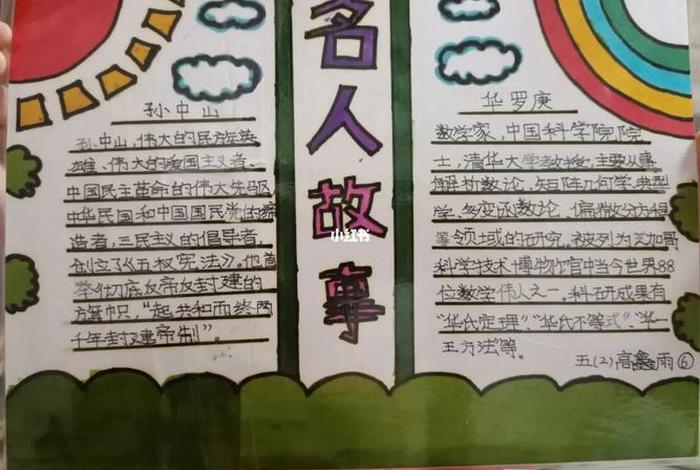 名人故事
孙中山
孙中山，伟大的民族英
雄、伟大的爱国主义者、
中国民主革命的伟大先驱，
中华民国和中国国民党的缔
造者，三民主义的倡导者，
创立了《五权宪法》。他首
举彻底反帝反封建的
方旗帜，“起共和而终两
千年封建帝制”。
华罗庚
数学家，中国科学院院
士，清华大学教授，主要从事
解析数论、矩阵几何学、典型
学、多变函数论、偏微分方程
等领域的研究，被列为芝加哥
科学技术博物馆中当今世界88
位数学伟人之一，科研成果有
“华氏定理”、“华氏不等式”、“华一
王方法”等。
五(2)高鑫雨⑥
小红书